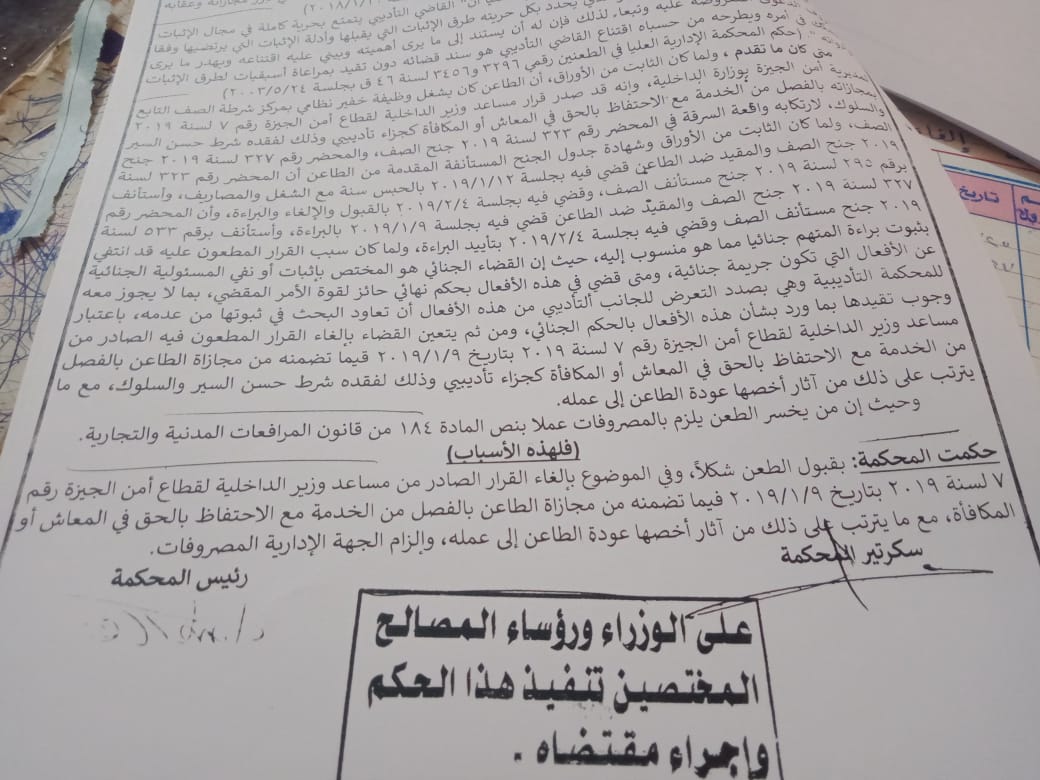 القاضي التأديبي يتمتع بحرية كاملة في مجال الإثبات
يحدد بكل حريته طرق الإثبات التي يقبلها وأدلة الإثبات التي يرتضيها وفقا
عليه وتبعاً لذلك فإن له أن يستند إلى ما يرى أهميته ويبني عليه اقتناعه ويهدر ما يرى
في أمره ويطرحه من حسبانه اقتناع القاضي التأديبي هو سند قضائه دون تقيد بمراعاة أسبقيات لطرق الإثبات
(حكم المحكمة الإدارية العليا في الطعنين رقمي ٣٢٩٦ و٣٤٥٦ لسنة ٤٦ ق بجلسة ٢٠٠٣/٥/٢٤)
متى كان ما تقدم، ولما كان الثابت من الأوراق، أن الطاعن كان يشغل وظيفة خفير نظامي بمركز شرطة الصف التابع
لمديرية أمن الجيزة بوزارة الداخلية، وانه قد صدر قرار مساعد وزير الداخلية لقطاع أمن الجيزة رقم ٧ لسنة ٢٠١٩
بمجازاته بالفصل من الخدمة مع الاحتفاظ بالحق في المعاش أو المكافأة كجزاء تأديبي وذلك لفقده شرط حسن السير
والسلوك، لارتكابه واقعة السرقة في المحضر رقم ٣٢٣ لسنة ٢٠١٩ جنح الصف، والمحضر رقم ٣٢٧ لسنة ٢٠١٩ جنح
الصف، ولما كان الثابت من الأوراق وشهادة جدول الجنح المستأنفة المقدمة من الطاعن أن المحضر رقم ٣٢٣ لسنة
٢٠١٩ جنح الصف والمقيد ضد الطاعن قضي فيه بجلسة ٢٠١٩/١/١٢ بالحبس سنة مع الشغل والمصاريف، وأستأنف
برقم ٢٩٥ لسنة ٢٠١٩ جنح مستأنف الصف، وقضي فيه بجلسة ٢٠١٩/٢/٤ بالقبول والإلغاء والبراءة، وأن المحضر رقم
٣٢٧ لسنة ٢٠١٩ جنح الصف والمقيد ضد الطاعن قضي فيه بجلسة ٢٠١٩/١/٩ بالبراءة، وأستأنف برقم ٥٣٣ لسنة
٢٠١٩ جنح مستأنف الصف وقضي فيه بجلسة ٢٠١٩/٢/٤ بتأييد البراءة، ولما كان سبب القرار المطعون عليه قد انتفي
بثبوت براءة المتهم جنائيا مما هو منسوب إليه، حيث إن القضاء الجنائي هو المختص بإثبات أو نفي المسئولية الجنائية
عن الأفعال التي تكون جريمة جنائية، ومتى قضي في هذه الأفعال بحكم نهائي حائز لقوة الأمر المقضي، بما لا يجوز معه
للمحكمة التأديبية وهي بصدد التعرض للجانب التأديبي من هذه الأفعال أن تعاود البحث في ثبوتها من عدمه، باعتبار
وجوب تقيدها بما ورد بشأن هذه الأفعال بالحكم الجنائي، ومن ثم يتعين القضاء بإلغاء القرار المطعون فيه الصادر من
مساعد وزير الداخلية لقطاع أمن الجيزة رقم ٧ لسنة ٢٠١٩ بتاريخ ٢٠١٩/١/٩ فيما تضمنه من مجازاة الطاعن بالفصل
من الخدمة مع الاحتفاظ بالحق في المعاش أو المكافأة كجزاء تأديبي وذلك لفقده شرط حسن السير والسلوك، مع ما
يترتب على ذلك من آثار أخصها عودة الطاعن إلى عمله.
وحيث إن من يخسر الطعن يلزم بالمصروفات عملا بنص المادة ١٨٤ من قانون المرافعات المدنية والتجارية.
(فلهذه الأسباب)
حكمت المحكمة: بقبول الطعن شكلاً، وفي الموضوع بإلغاء القرار الصادر من مساعد وزير الداخلية لقطاع أمن الجيزة رقم
٧ لسنة ٢٠١٩ بتاريخ ٢٠١٩/١/٩ فيما تضمنه من مجازاة الطاعن بالفصل من الخدمة مع الاحتفاظ بالحق في المعاش أو
المكافأة، مع ما يترتب على ذلك من آثار أخصها عودة الطاعن إلى عمله، وإلزام الجهة الإدارية المصروفات.
سكرتير المحكمة
رئيس المحكمة
على الوزراء ورؤساء المصالح
المختصين تنفيذ هذا الحكم
وإجراء مقتضاه .
تاريخ